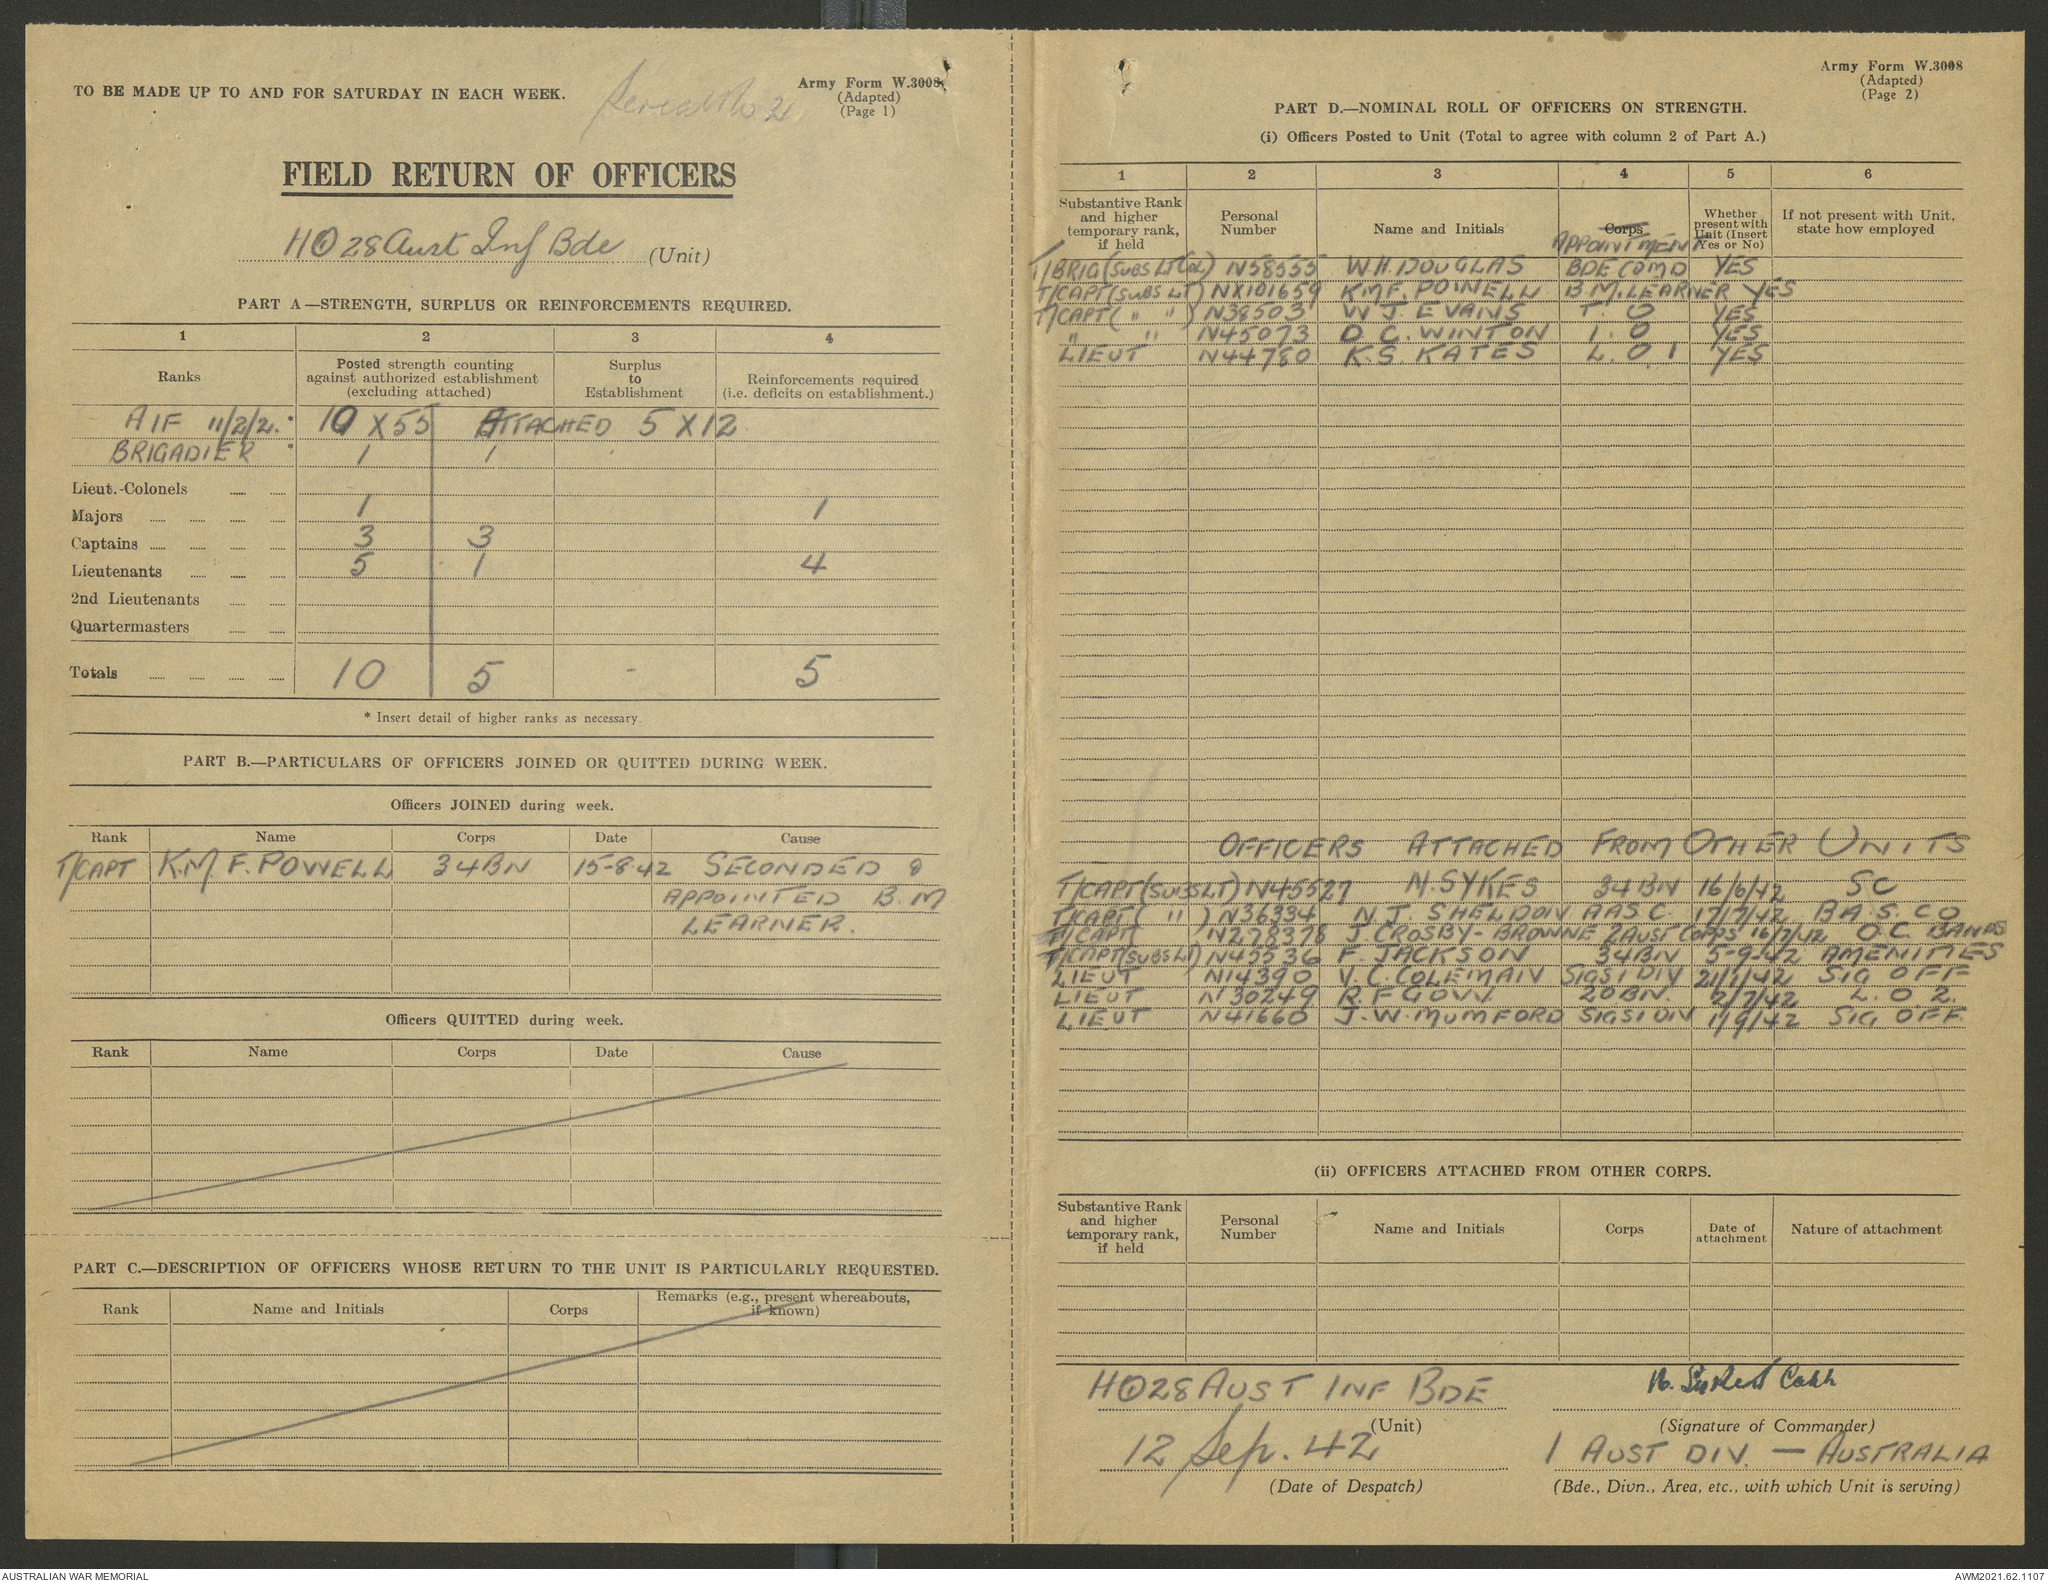 TO BE MADE UP TO AND FOR SATURDAY IN EACH WEEK.
Serial No 21
Army Form W.3008
(Adapted)
(Page 1)
FIELD RETURN OF OFFICERS
HQ 28 Aust Inf Bde (Unit)
PART A—STRENGTH, SURPLUS OR REINFORCEMENTS REQUIRED.
1 2 3 4
Ranks
Posted strength counting against authorized establishment (excluding attached)
Surplus to Establishment
Reinforcements required (i.e. deficits on establishment.)
AIF 11/2/2. * 10 X 55 ATTACHED 5 X 12
BRIGADIER * 1 1
Lieut.-Colonels
Majors 1 1
Captains 3 3
Lieutenants 5 1 4
2nd Lieutenants
Quartermasters
Totals 10 5 - 5
* Insert detail of higher ranks as necessary.
PART B.—PARTICULARS OF OFFICERS JOINED OR QUITTED DURING WEEK.
Officers JOINED during week.
Rank Name Corps Date Cause
T/CAPT K.M.F. POWELL 34BN 15-8-42 SECONDED &
APPOINTED B.M
LEARNER.
Officers QUITTED during week.
Rank Name Corps Date Cause
PART C.—DESCRIPTION OF OFFICERS WHOSE RETURN TO THE UNIT IS PARTICULARLY REQUESTED.
Rank Name and Initials Corps Remarks (e.g., present whereabouts, if known)
Army Form W.3008
(Adapted)
(Page 2)
PART D.—NOMINAL ROLL OF OFFICERS ON STRENGTH.
(i) Officers Posted to Unit (Total to agree with column 2 of Part A.)
1 2 3 4 5 6
Substantive Rank and higher temporary rank, if held
Personal Number
Name and Initials
Corps
APPOINTMENT
Whether present with Unit (Insert Yes or No)
If not present with Unit, state how employed
T/BRIG (SUBS LT COL) N58555 W.H. DOUGLAS BDE COMD YES
T/CAPT (SUBS LT) NX101659 K.M.F. POWELL B.M. LEARNER YES
T/CAPT ( " " ) N38503 W J. EVANS T. O YES
" " N45073 D C. WINTON I. O YES
LIEUT N44780 K.S. KATES L. O 1 YES
OFFICERS ATTACHED FROM OTHER UNITS
T/CAPT (SUBS LT) N45527 N. SYKES 34BN 16/6/42 SC
T/CAPT ( " ) N36334 N J. SHELDON AASC. 17/7/42 BA.S.CO
T/CAPT N278378 J CROSBY-BROWNE 2 AUST CORPS 16/7/42 O.C. BANDS
T/CAPT (SUBS LT) N45536 F. JACKSON 34BN 5-9-42 AMENITIES
LIEUT N14390 V. C. COLEMAN SIGS 1 DIV 21/1/42 SIG OFF
LIEUT N30249 R. F GOW. 20BN. 2/7/42 L. O. 2.
LIEUT N41660 J. W. MUMFORD SIGS 1 DIV 1/9/42 SIG OFF.
(ii) OFFICERS ATTACHED FROM OTHER CORPS.
Substantive Rank and higher temporary rank, if held
Personal Number
Name and Initials
Corps
Date of attachment
Nature of attachment
HQ 28 AUST INF BDE
(Unit)
12 Sep. 42
(Date of Despatch)
N. Sykes Capt
(Signature of Commander)
1 AUST DIV. — AUSTRALIA
(Bde., Divn., Area, etc., with which Unit is serving)
AUSTRALIAN WAR MEMORIAL
AWM2021.62.1107